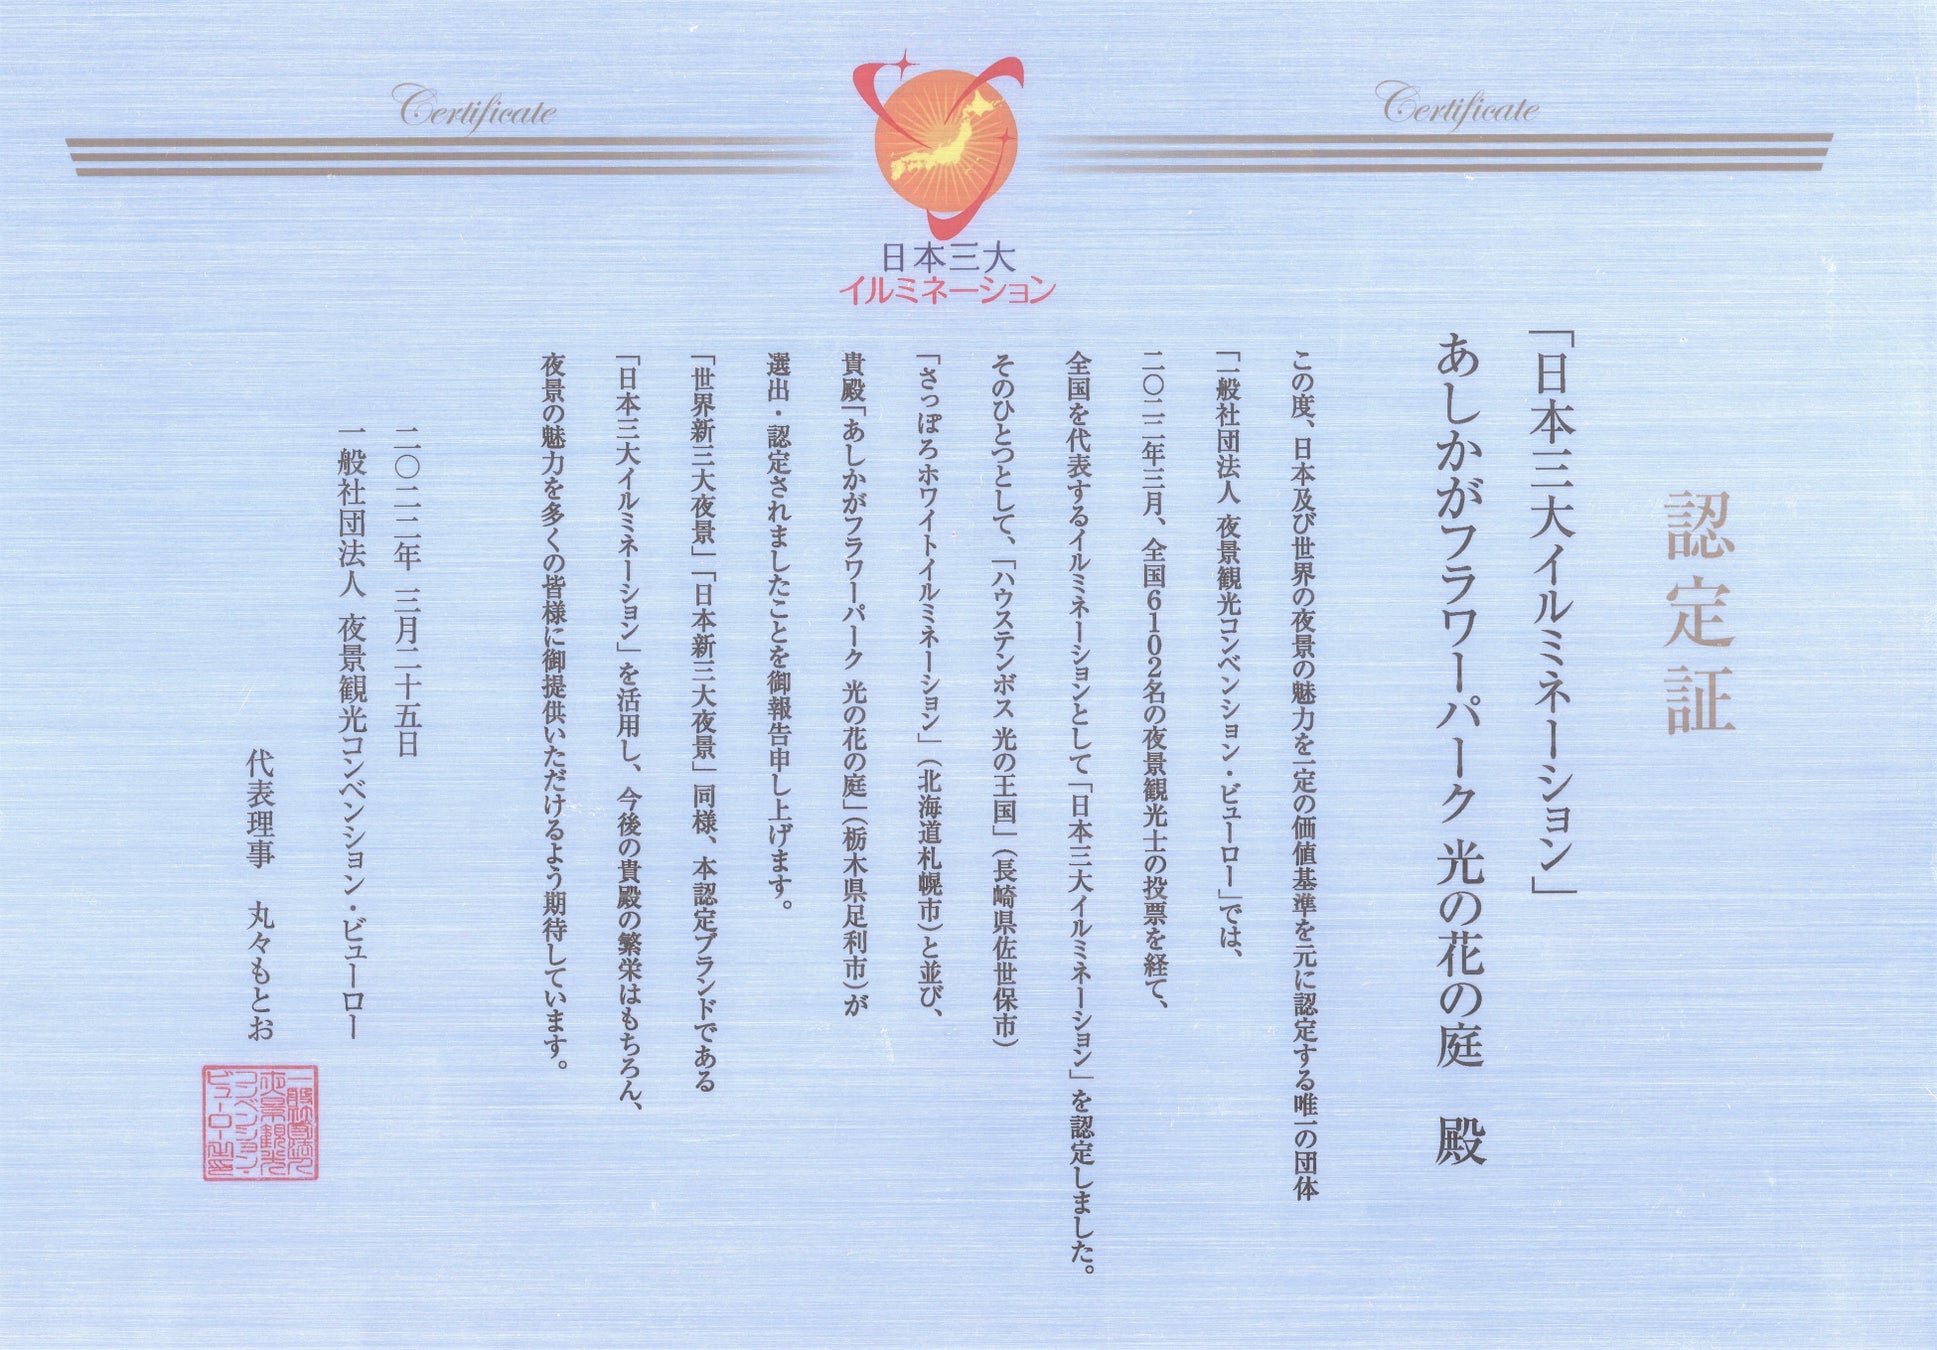 Certificate
Certificate
日本三大
イルミネーション
認定証
「日本三大イルミネーション」
あしかがフラワーパーク 光の花の庭　殿
この度、日本及び世界の夜景の魅力を一定の価値基準を元に認定する唯一の団体
「一般社団法人 夜景観光コンベンション・ビューロー」では、
二〇二二年三月、全国6102名の夜景観光士の投票を経て、
全国を代表するイルミネーションとして「日本三大イルミネーション」を認定しました。
そのひとつとして、「ハウステンボス 光の王国」（長崎県佐世保市）
「さっぽろホワイトイルミネーション」（北海道札幌市）と並び、
貴殿「あしかがフラワーパーク 光の花の庭」（栃木県足利市）が
選出・認定されましたことを御報告申し上げます。
「世界新三大夜景」「日本新三大夜景」同様、本認定ブランドである
「日本三大イルミネーション」を活用し、今後の貴殿の繁栄はもちろん、
夜景の魅力を多くの皆様に御提供いただけるよう期待しています。
二〇二二年 三月二十五日
一般社団法人 夜景観光コンベンション・ビューロー
代表理事　丸々もとお
一般社団法人
夜景観光
コンベンション・
ビューロー